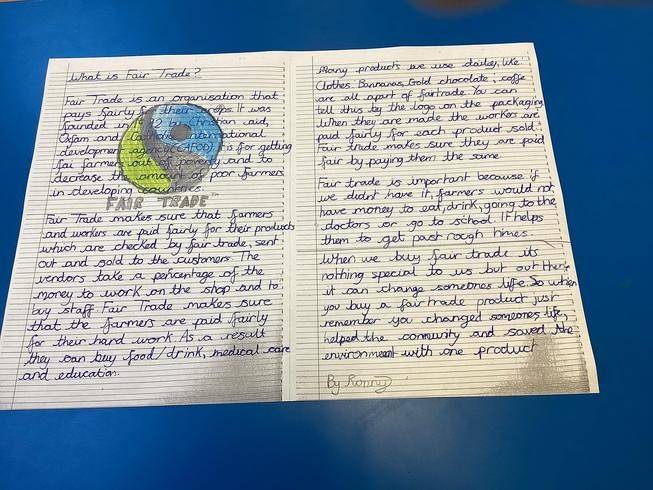 What is Fair Trade?
Fair Trade is an organisation that
pays fairly for their crops. It was
founded in by Christian aid,
Oxfam and Catholic international
development agencie (CAFOD) is for getting
fai farmer out of poverty and to
decrease the amount of poor farmers
in developing countries.
FAIR TRADE
Fair Trade makes sure that farmers
and workers are paid fairly for their products
which are checked by fair trade, sent
out and sold to the customers. The
vendors take a percentage of the
money to work on the shop and to
buy staff. Fair Trade makes sure
that the farmers are paid fairly
for their hard work. As a result
they can buy food/drink, medical care
and education.
Many products we use dailey, like
Clothes. Bannanas, Gold chocolate, coffe
are all apart of fairtrade. You can
tell this by the logo on the packaging
When they are made the workers are
paid fairly for each product sold.
Fair trade makes sure they are paid
fair by paying them the same.
Fair trade is important because if
we didnt have it, farmers would not
have money to eat, drink, going to the
doctors or go to school. If helps
them to get past rough times.
When we buy fair trade its
nothing special to us but out there
it can change someones life. So when
you buy a fairtrade product just
remember you changed someones life,
helped the comunity and saved the
environment with one product
By Ronny